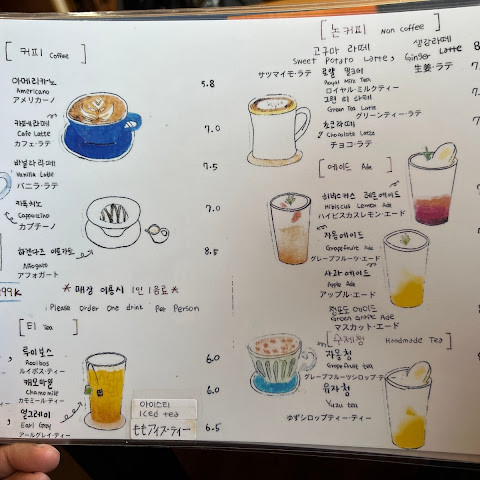 [ 커피 Coffee ]
아메리카노
Americano
アメリカーノ
5.8
카페라떼
Cafe Latte
カフェ・ラテ
7.0
바닐라라떼
Vanilla Latte
バニラ・ラテ
7.5
카푸치노
Cappuccino
カプチーノ
7.0
하겐다즈 아포가토
Affogato
アフォガート
8.5
* 매장 이용시 1인 1음료 *
Please order one drink Per Person
[ 티 Tea ]
루이보스
Rooibos
ルイボス・ティー
6.0
캐모마일
Chamomile
カモミール・ティー
6.0
얼그레이
Earl Gray
アールグレイ・ティー
아이스티
Iced tea
ももアイス・ティー
6.5
[ 논커피 Non Coffee ]
고구마 라떼
생강라떼
Sweet Potato Latte, Ginger Latte
サツマイモ・ラテ
生姜・ラテ
로얄 밀크티
Royal Milk Tea
ロイヤル・ミルクティー
그린 티 라떼
Green Tea Latte
グリーンティー・ラテ
초코라떼
Chocolate Latte
チョコ・ラテ
[ 에이드 Ade ]
히비스커스 레몬에이드
Hibiscus Lemon Ade
ハイビスカスレモン・エード
자몽에이드
Grapefruit Ade
グレープフルーツ・エード
사과 에이드
Apple Ade
アップル・エード
청포도 에이드
Green Grape Ade
マスカット・エード
[ 수제청 Handmade Tea ]
자몽청
Grapefruit tea
グレープフルーツシロップ・テ
유자청
Yuzu tea
ゆずシロップティー・ティー